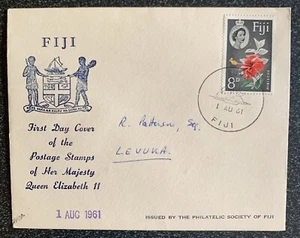 FIJI
Fiji
8D
1 AU 61
FIJI
First Day Cover
of the
Postage Stamps
of Her Majesty
Queen Elizabeth II
Esq.
LEVUKA.
1 AUG 1961
ISSUED BY THE PHILATELIC SOCIETY OF FIJI